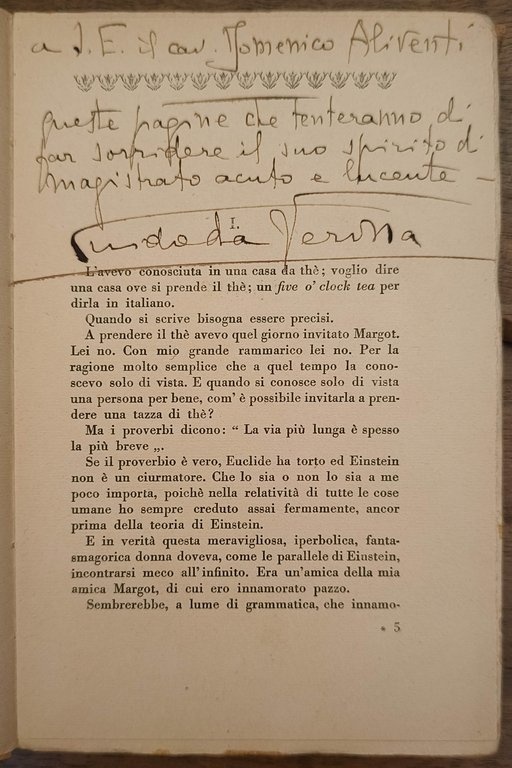 a S. E. il cav. Domenico Aliventi
queste pagine che tenteranno di
far sorridere il suo spirito di
magistrato acuto e lucente —
I.
Guido da Verona
L'avevo conosciuta in una casa da thè; voglio dire
una casa ove si prende il thè; un five o' clock tea per
dirla in italiano.
Quando si scrive bisogna essere precisi.
A prendere il thè avevo quel giorno invitato Margot.
Lei no. Con mio grande rammarico lei no. Per la
ragione molto semplice che a quel tempo la cono-
scevo solo di vista. E quando si conosce solo di vista
una persona per bene, com' è possibile invitarla a pren-
dere una tazza di thè?
Ma i proverbi dicono: “ La via più lunga è spesso
la più breve „.
Se il proverbio è vero, Euclide ha torto ed Einstein
non è un ciurmatore. Che lo sia o non lo sia a me
poco importa, poichè nella relatività di tutte le cose
umane ho sempre creduto assai fermamente, ancor
prima della teoria di Einstein.
E in verità questa meravigliosa, iperbolica, fanta-
smagorica donna doveva, come le parallele di Einstein,
incontrarsi meco all'infinito. Era un'amica della mia
amica Margot, di cui ero innamorato pazzo.
Sembrerebbe, a lume di grammatica, che innamo-
* 5